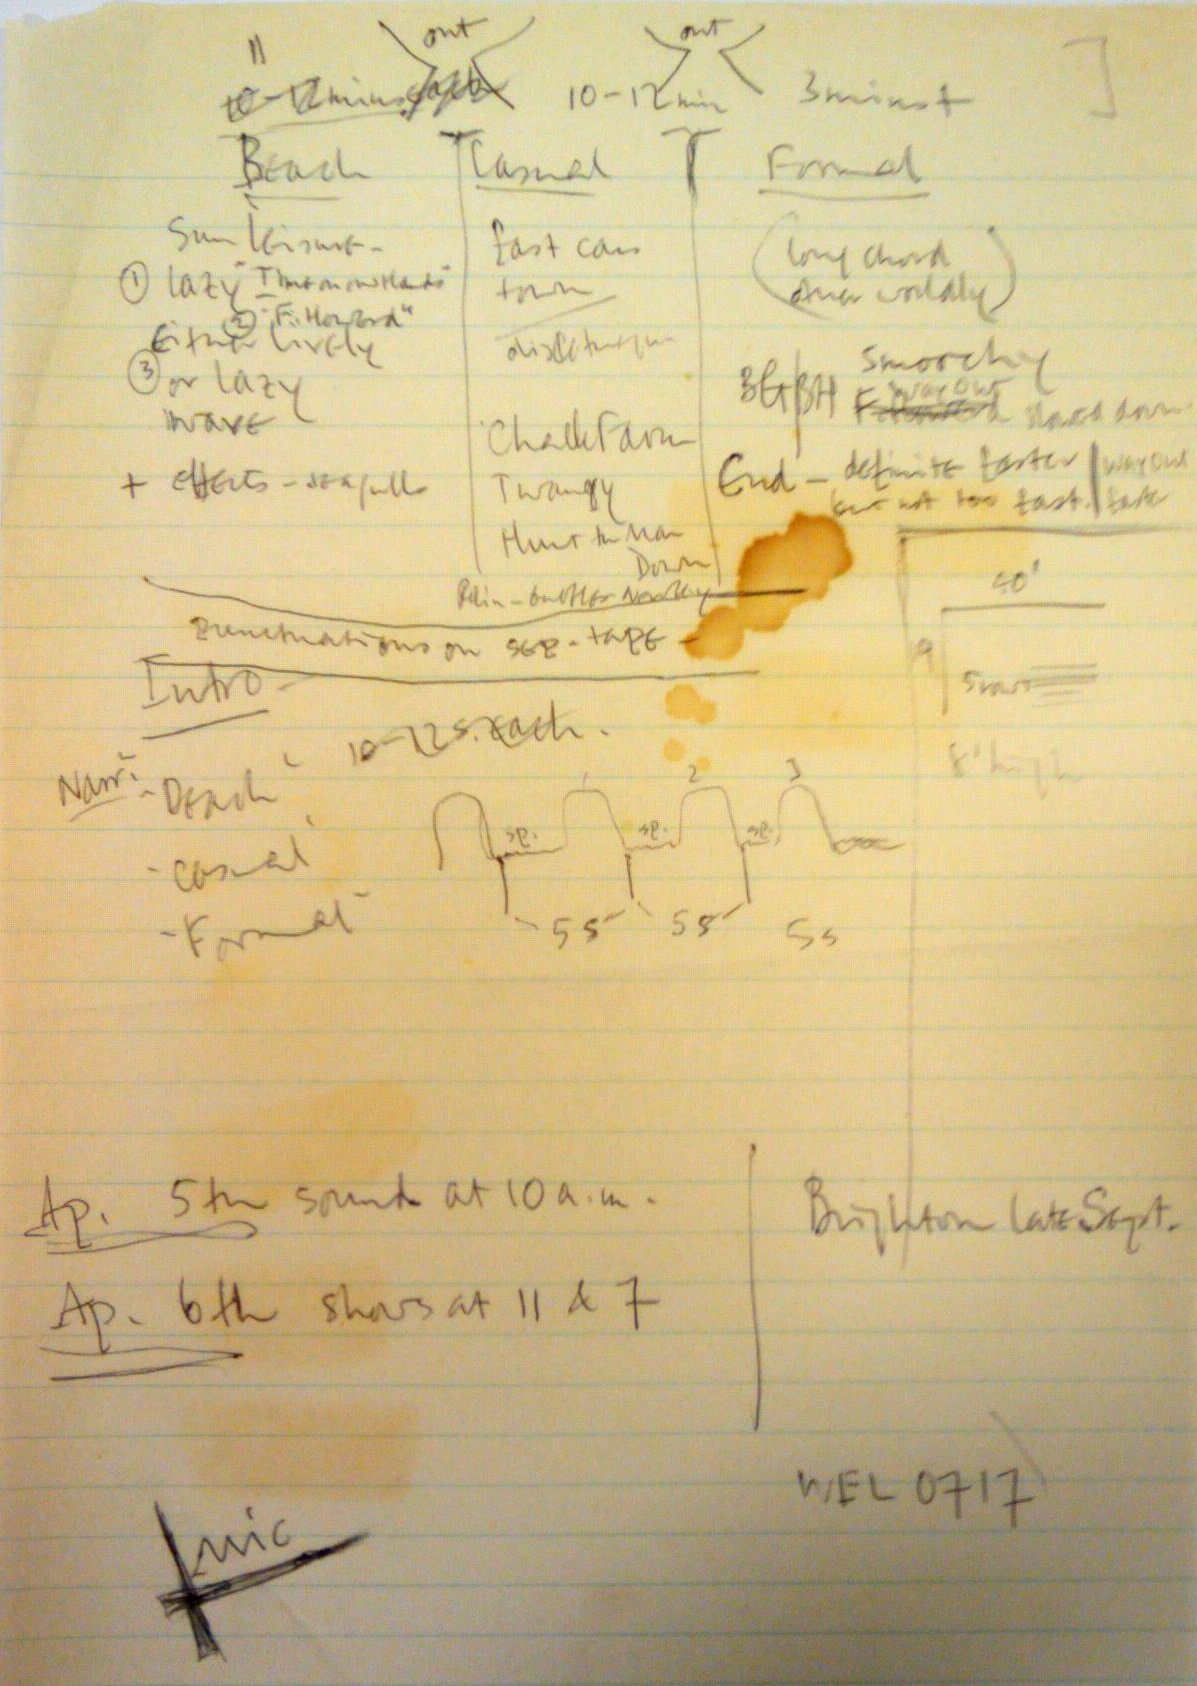 out out
11
10-12 mins each 10-12 min 3 mins +
Beach Casual Formal
Sun leisure -
① lazy "Time on our Hands"
②
Either lively
③ or lazy
wave
+ effects - seagulls
fast cars
town
Chalk Farm
Twangy
Hunt the Man
Down
(long chord
other worldly)
Smoochy
BG/BH way out Hand down
End - definite faster | way out
but not too fast. | faster
punctuations on sep. tape
40'
9
8' high
Intro -
10-12 s. each.
Narr:
- Beach
- Casual
- Formal
1 2 3
sp. sp. sp.
5s 5s 5s
Ap. 5th sound at 10 a.m.
Ap. 6th shows at 11 & 7
Brighton late Sept.
WEL 0717
mic